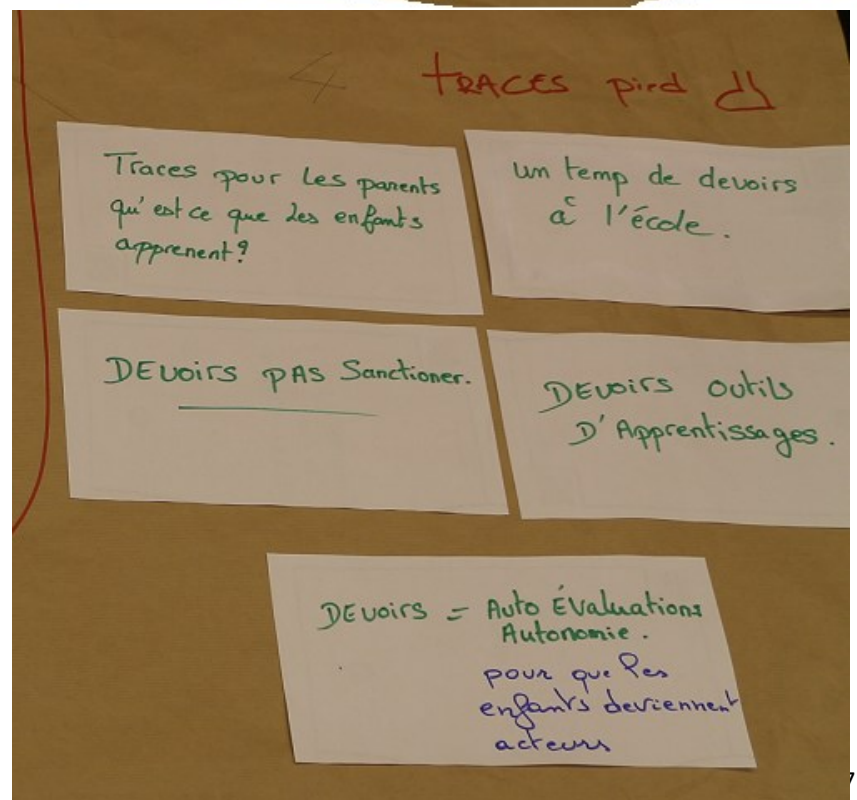 4 TRACES pied
Traces pour les parents
qu'est ce que les enfants
apprenent?
un temp de devoirs
à l'école.
DEVOIRS PAS Sanctioner.
DEVOIRS OUTILS
D'Apprentissages.
DEVOIRS = Auto Évaluations
Autonomie.
pour que les
enfants deviennent
acteurs
7